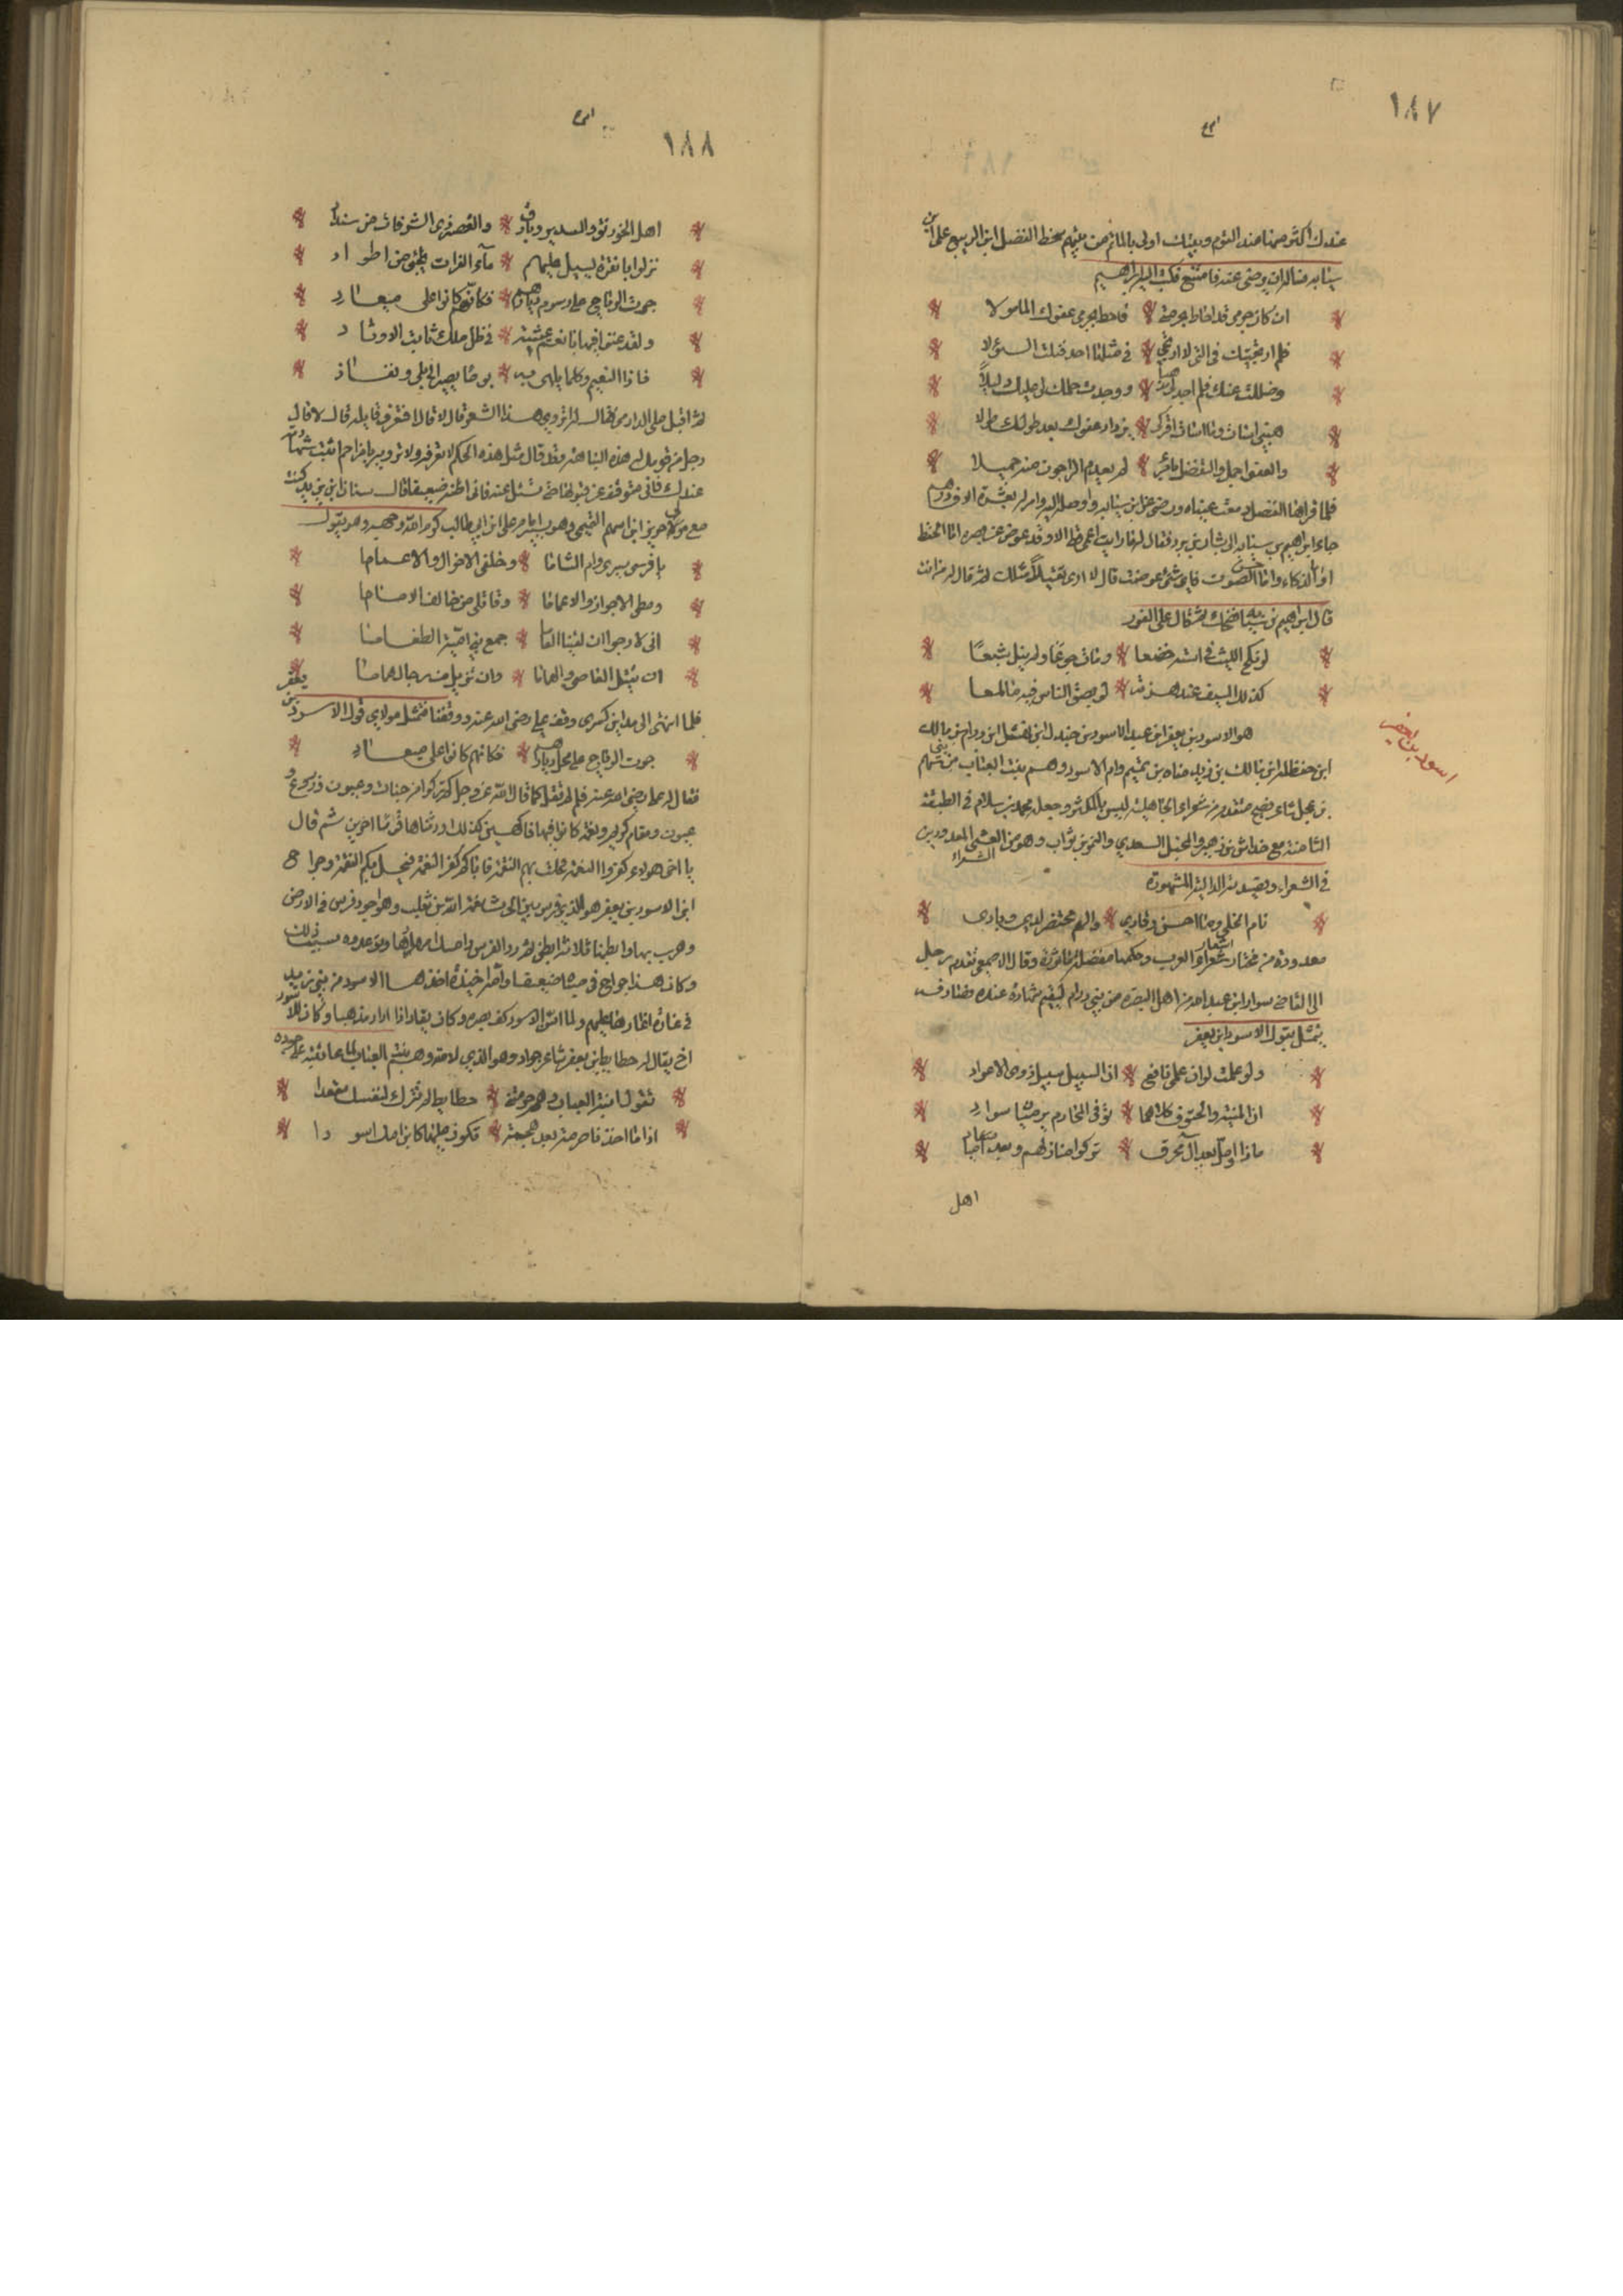 ١٨٧
عندك اكثر منها عند القوم وبيتك اولى بالمأثم من بيتهم سخط الفضل ابن الربيع على ابن
سيابه فسأله ان يرضى عنه فامتنع فكتب اليه ابراهيم
ان كان جرمي قد احاط بحرمتي * فاحط بجرمي عفوك المامولا
فلم ارتجيتك في التي لا ارتجي * في مثلها احد فنلت السؤلا
وضللت عنك فلم اجد لي مذهبا * ووجدت حلمك لي عليك دليلا
هبني اسأت وما اسأت اقر كي * يزداد عفوك بعد طولك طولا
والعفو اجمل والتفضل بامرئ * لم يعدم الراجون منه جميلا
فلما قراها الفضل دمعت عيناه ورضى عن ابن سيابه واوصله اليه وامر له بعشرة الاف درهم
جاء ابراهيم بن سيابه الى بشار بن برد فقال له ما رايت اعمى قط الا وقد عوض عن بصره اما الحفظ
او الذكاء واما حسن الصوت فاي شئ عوضت قال لا ارى ثقيلا مثلك ثم قال له من انت
قال ابراهيم بن سيابه فضحك ثم قال على الفور
لو نكح الليث في استه خضعا * ومات جوعا ولم ينل شبعا
كذلك السيف عند هزته * لو بصق الناس فيه ما لمعا
اسود بن يعفر
هو الاسود بن يعفر ابن عبد الاسود بن جندل ابن نهشل ابن دارم بن مالك
ابن حنظله ابن مالك بن زيد مناه بن تميم وام الاسود رهم بنت العباب من بني سهم
بن عجل شاعر فصيح متقدم من شعراء الجاهلية ليس بالمكثر وجعله محمد بن سلام في الطبقة
الثامنة مع خداش بن زهير والمخبل السعدي والنمر بن تولب وهو من العشى المعدودين
في الشعراء وقصيدته الدالية المشهورة
نام الخلي وما احس رقادي * والهم محتضر لدي وسادي
معدودة من مختار اشعار العرب وحكمها مفضلة ماثورة وقال الاصمعي تقدم رجل
الى القاضي سوار ابن عبد الله من اهل البصرة من بني دارم ليقيم شهادة عنده فصادفه
يتمثل بقول الاسود ابن يعفر
ولو علمت لو ان علمي نافع * ان السبيل سبيل ذوى الاعواد
ان المنية والحتوف كلاهما * توفى المخارم يرميان سوادي
ماذا اؤمل بعد آل محرق * تركوا منازلهم وبعد اياد
اهل
١٨٨
اهل الخورنق والسدير وبارق * والقصر ذي الشرفات من سنداد
نزلوا بانقرة يسيل عليهم * ماء الفرات يجئ من اطواد
جرت الرياح على رسوم ديارهم * فكانهم كانوا على ميعاد
ولقد غنوا فيها بانعم عيشة * في ظل ملك ثابت الاوتاد
فاذا النعيم وكلما يلهى به * يوما يصير الى بلى ونفاد
ثم اقبل على الدارمي فقال له اتروي هذا الشعر قال لا قال افتعرف قايله قال لا قال
رجل من قومك له هذه النباهة وقد قال مثل هذه الحكم لا تعرفه ولا ترويه يا مزاحم اثبت شهادته
عندك فاني متوقف عن قبولها حتى تسئل عنه فاني اظنه ضعيفا قال سنان ابن يزيد كنت
مع مولاي جرير ابن سهم التميمي وهو يساير علي ابن ابي طالب كرم الله وجهه وهو يقول
يا فرسى سيرى وام الشاما * وخلفى الاخوال والاعماما
وقطعى الاجواز والاعلاما * وقاتلى من خالف الاماما
انى لارجو ان لقينا العاما * جمع بني امية الطغاما
ان نقتل العاصى والهماما * وان نزيل من رجال هاما
فلما انتهى الى مداين كسرى وقف علي رضى الله عنه ووقفنا فتمثل مولاي قول الاسود بن يعفر
جرت الرياح على محل ديارهم * فكانهم كانوا على ميعاد
فقال له علي رضى الله عنه فلم لم تقل كما قال الله عز وجل كم تركوا من جنات وعيون وزروع
ومقام كريم ونعمة كانوا فيها فاكهين كذلك اورثناها قوما اخرين ثم قال
يا اخى هولاء كفروا النعمة فحلت بهم النقمة فاياكم كفر النعمة فتحل بكم النقمة وجراح
ابن الاسود بن يعفر
وكان هذا جراح في صباه ضعيفا
اخ يقال له حطايط ابن يعفر شاعر جواد وهو الذي لامته رهم بنت العباب لما عاتبته على جوده
تقول ابنة العباب رهم حربتنا * حطايط لم تترك لنفسك مقعدا
اذا ما افدنا صرمة بعد هجمة * تكون عليها كابن امك اسودا